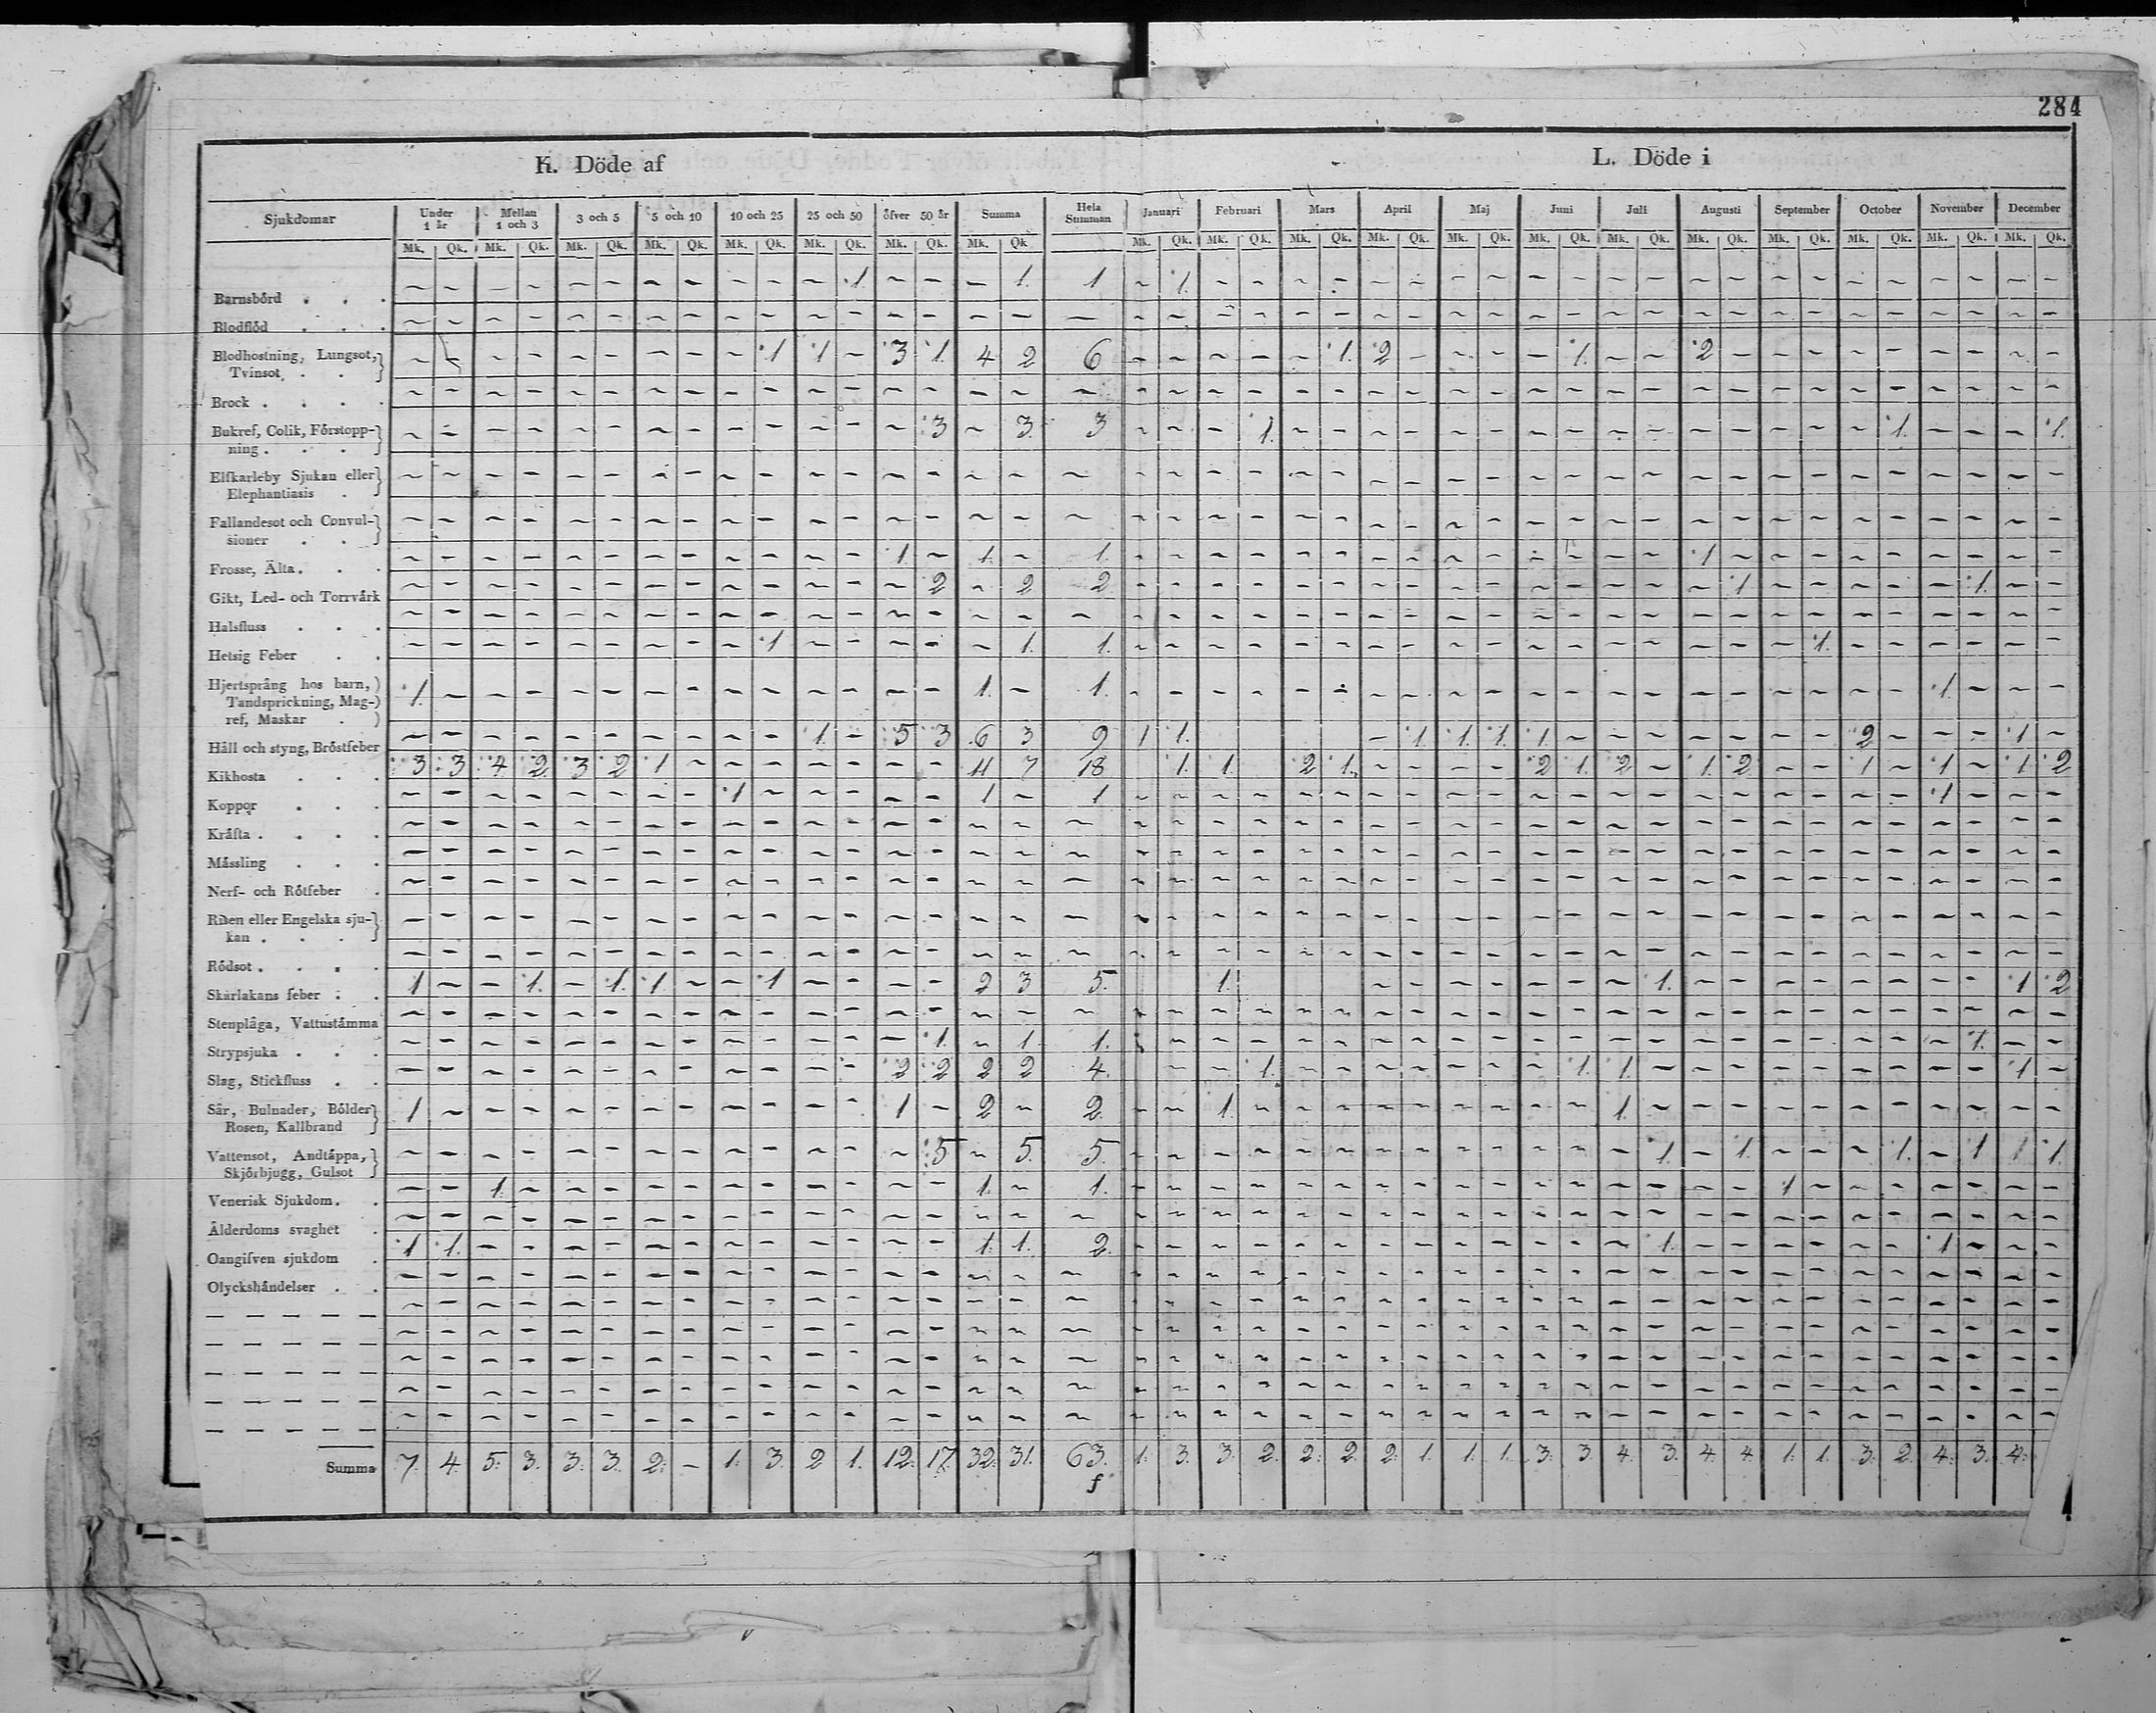 284
K. Döde af L. Döde i
Sjukdomar Under 1 år Mellan 1 och 3 3 och 5 5 och 10 10 och 25 25 och 50 öfver 50 år Summa Hela Summan Januari Februari Mars April Maj Juni Juli Augusti September October November December
Mk. Qk. Mk. Qk. Mk. Qk. Mk. Qk. Mk. Qk. Mk. Qk. Mk. Qk. Mk. Qk Mk. Qk. Mk. Qk. Mk. Qk. Mk. Qk. Mk. Qk. Mk. Qk. Mk. Qk. Mk. Qk. Mk. Qk. Mk. Qk. Mk. Qk. Mk. Qk.
Barnsbörd . . . ~ ~ ~ ~ ~ ~ ~ ~ ~ ~ ~ 1 ~ ~ ~ 1. 1 ~ 1. ~ ~ ~ ~ ~ ~ ~ ~ ~ ~ ~ ~ ~ ~ ~ ~ ~ ~ ~ ~ ~ ~
Blodflöd . . .
Blodhostning, Lungsot,
Tvinsot . . ~ ~ ~ ~ ~ ~ ~ ~ ~ 1 1 ~ 3 1. 4 2 6 ~ ~ ~ ~ ~ 1. 2 ~ ~ ~ ~ 1. ~ ~ 2 ~ ~ ~ ~ ~ ~ ~ ~ ~
Brock . . . .
Bukref, Colik, Förstopp-
ning . . . ~ ~ ~ ~ ~ ~ ~ ~ ~ ~ ~ ~ ~ 3 ~ 3. 3 ~ ~ ~ 1. ~ ~ ~ ~ ~ ~ ~ ~ ~ ~ ~ ~ ~ ~ ~ 1. ~ ~ ~ 1.
Elfkarleby Sjukan eller
Elephantiasis .
Fallandesot och Convul-
sioner . .
Frosse, Älta . . . ~ ~ ~ ~ ~ ~ ~ ~ ~ ~ ~ ~ 1 ~ 1. ~ 1. ~ ~ ~ ~ ~ ~ ~ ~ ~ ~ ~ ~ ~ ~ 1 ~ ~ ~ ~ ~ ~ ~ ~ ~
Gikt, Led- och Torrvärk ~ ~ ~ ~ ~ ~ ~ ~ ~ ~ ~ ~ ~ 2 ~ 2 2 ~ ~ ~ ~ ~ ~ ~ ~ ~ ~ ~ ~ ~ ~ ~ 1 ~ ~ ~ ~ ~ 1. ~ ~
Halsfluss . . .
Hetsig Feber . . ~ ~ ~ ~ ~ ~ ~ ~ ~ 1 ~ ~ ~ ~ ~ 1. 1. ~ ~ ~ ~ ~ ~ ~ ~ ~ ~ ~ ~ ~ ~ ~ ~ ~ 1. ~ ~ ~ ~ ~ ~
Hjertsprång hos barn,
Tandsprickning, Mag-
ref, Maskar . 1. ~ ~ ~ ~ ~ ~ ~ ~ ~ ~ ~ ~ ~ 1. ~ 1. ~ ~ ~ ~ ~ ~ ~ ~ ~ ~ ~ ~ ~ ~ ~ ~ ~ ~ ~ ~ 1. ~ ~ ~
Håll och styng, Bröstfeber ~ ~ ~ ~ ~ ~ ~ ~ ~ ~ 1. ~ 5 3 6 3 9 1 1. ~ 1 1. 1. 1. ~ ~ ~ ~ ~ ~ ~ 2 ~ ~ ~ 1 ~
Kikhosta . . . 3 3 4 2 3 2 1 ~ ~ ~ ~ ~ ~ ~ 11 7 18 1. 1. 2 1. ~ ~ ~ ~ 2 1. 2 ~ 1. 2 ~ ~ 1 ~ 1 ~ 1 2
Koppor . . . ~ ~ ~ ~ ~ ~ ~ ~ 1 ~ ~ ~ ~ ~ 1 ~ 1 ~ ~ ~ ~ ~ ~ ~ ~ ~ ~ ~ ~ ~ ~ ~ ~ ~ ~ ~ ~ 1 ~ ~ ~
Kräfta . . . .
Mässling . . .
Nerf- och Rötfeber .
Risen eller Engelska sju-
kan . . .
Rödsot . . . .
Skarlakans feber . . 1 ~ ~ 1. ~ 1. 1 ~ ~ 1 ~ ~ ~ ~ 2 3 5. 1. ~ ~ ~ ~ ~ ~ ~ 1. ~ ~ ~ ~ ~ ~ ~ ~ 1 2
Stenplåga, Vattustämma
Strypsjuka . . . ~ ~ ~ ~ ~ ~ ~ ~ ~ ~ ~ ~ ~ 1. ~ 1 1. ~ ~ ~ ~ ~ ~ ~ ~ ~ ~ ~ ~ ~ ~ ~ ~ ~ ~ ~ ~ 1. ~ ~
Slag, Stickfluss . . ~ ~ ~ ~ ~ ~ ~ ~ ~ ~ ~ ~ 2 2 2 2 4. ~ ~ 1. ~ ~ ~ ~ ~ ~ ~ 1. 1. ~ ~ ~ ~ ~ ~ ~ ~ ~ 1 ~
Sår, Bulnader, Bölder
Rosen, Kallbrand 1 ~ ~ ~ ~ ~ ~ ~ ~ ~ ~ ~ 1 ~ 2 ~ 2 ~ ~ 1. ~ ~ ~ ~ ~ ~ ~ ~ ~ 1. ~ ~ ~ ~ ~ ~ ~ ~ ~ ~ ~
Vattensot, Andtäppa,
Skjörbjugg, Gulsot ~ ~ ~ ~ ~ ~ ~ ~ ~ ~ ~ ~ ~ 5 ~ 5. 5. ~ ~ ~ ~ ~ ~ ~ ~ ~ ~ ~ ~ ~ 1. ~ 1. ~ ~ ~ 1. ~ 1 1 1.
Venerisk Sjukdom . . ~ ~ 1. ~ ~ ~ ~ ~ ~ ~ ~ ~ ~ ~ 1. ~ 1. ~ ~ ~ ~ ~ ~ ~ ~ ~ ~ ~ ~ ~ ~ ~ ~ 1 ~ ~ ~ ~ ~ ~ ~
Ålderdoms svaghet .
Oangifven sjukdom . 1 1. ~ ~ ~ ~ ~ ~ ~ ~ ~ ~ ~ ~ 1. 1. 2. ~ ~ ~ ~ ~ ~ ~ ~ ~ ~ ~ ~ ~ 1. ~ ~ ~ ~ ~ ~ 1 ~ ~ ~
Olyckshändelser . .
Summa 7. 4. 5. 3. 3. 3. 2. ~ 1. 3. 2 1. 12. 17. 32. 31. 63. 1. 3. 3. 2. 2. 2. 2. 1. 1. 1. 3. 3. 4. 3. 4. 4. 1. 1. 3. 2. 4. 3. 4.